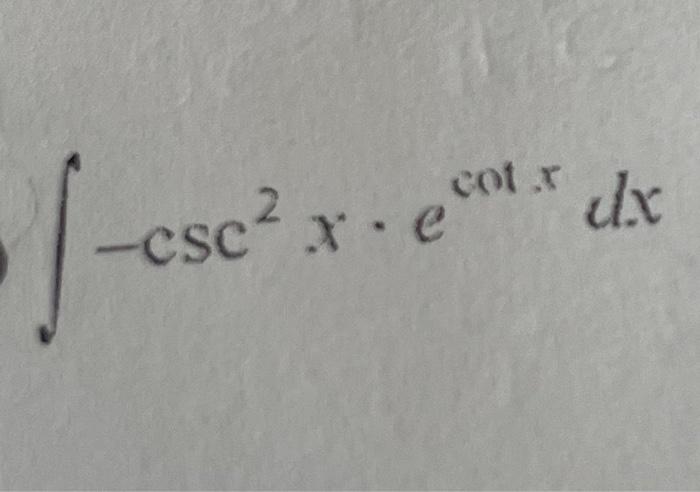 ∫ −csc² x · e^{cot x} dx